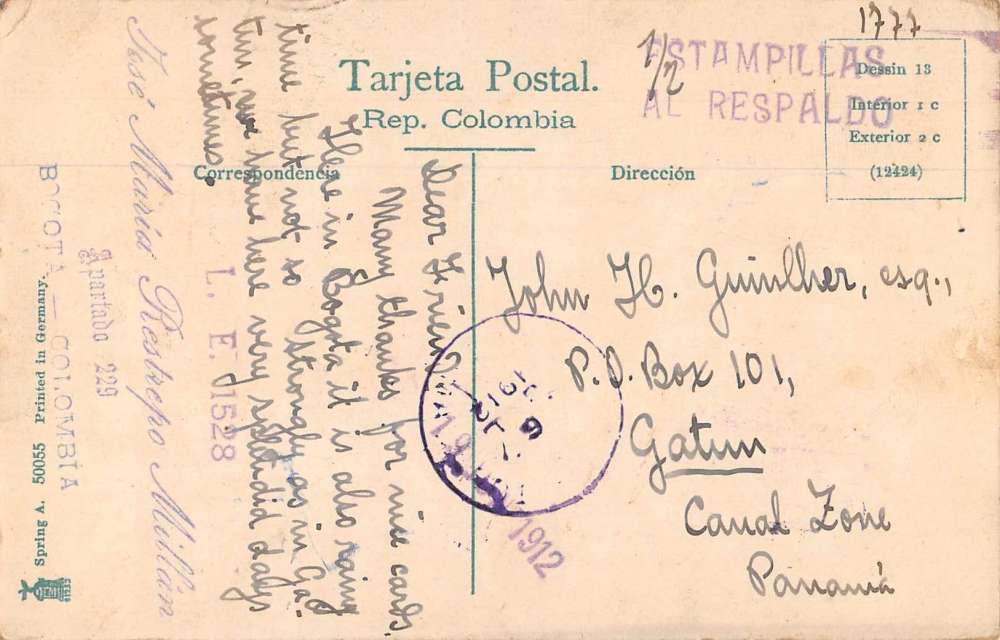 1777
1/2
ESTAMPILLAS
AL RESPALDO
Tarjeta Postal.
Rep. Colombia
Dessin 13
Interior 1 c
Exterior 2 c
(12424)
Correspondencia
Dirección
Dear Friend:
Many thanks for nice cards.
Here in Bogota it is also rainy
time but not so strongly as in Ga-
tun, we have here very splendid days
sometimes.
L. E. 1528
José María Restrepo Millán
Apartado 229
BOGOTA — COLOMBIA
Spring A. 50055 Printed in Germany.
John H. Guilher, esq.,
P.O. Box 101,
Gatun
Canal Zone
Panamá
1912